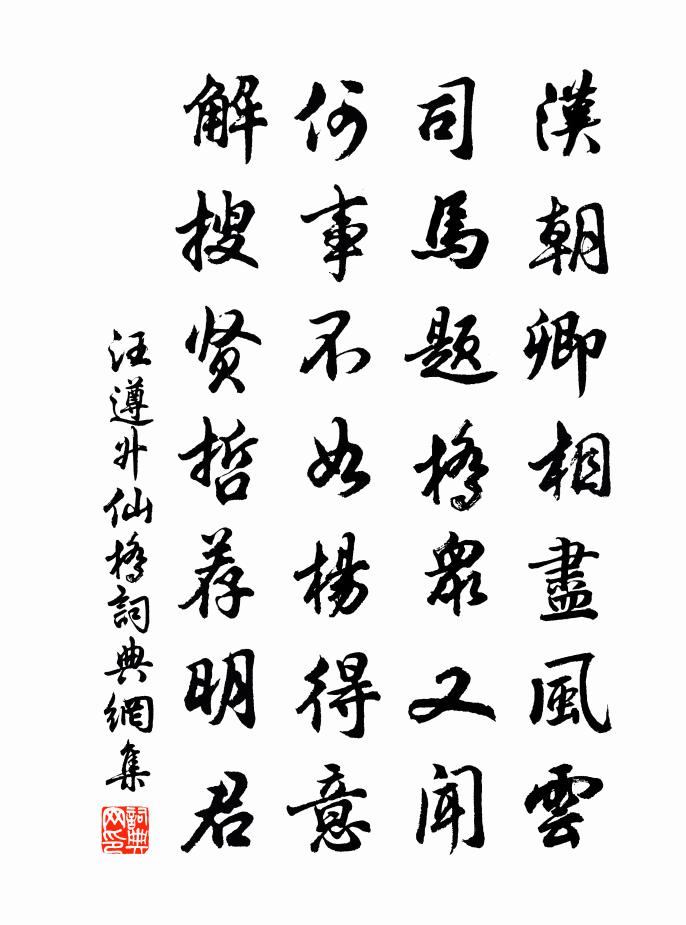 漢朝卿相盡風雲
司馬題橋衆又聞
何事不如楊得意
解搜贤哲荐明君
汪遵升仙橋詞典網集
詞典网印